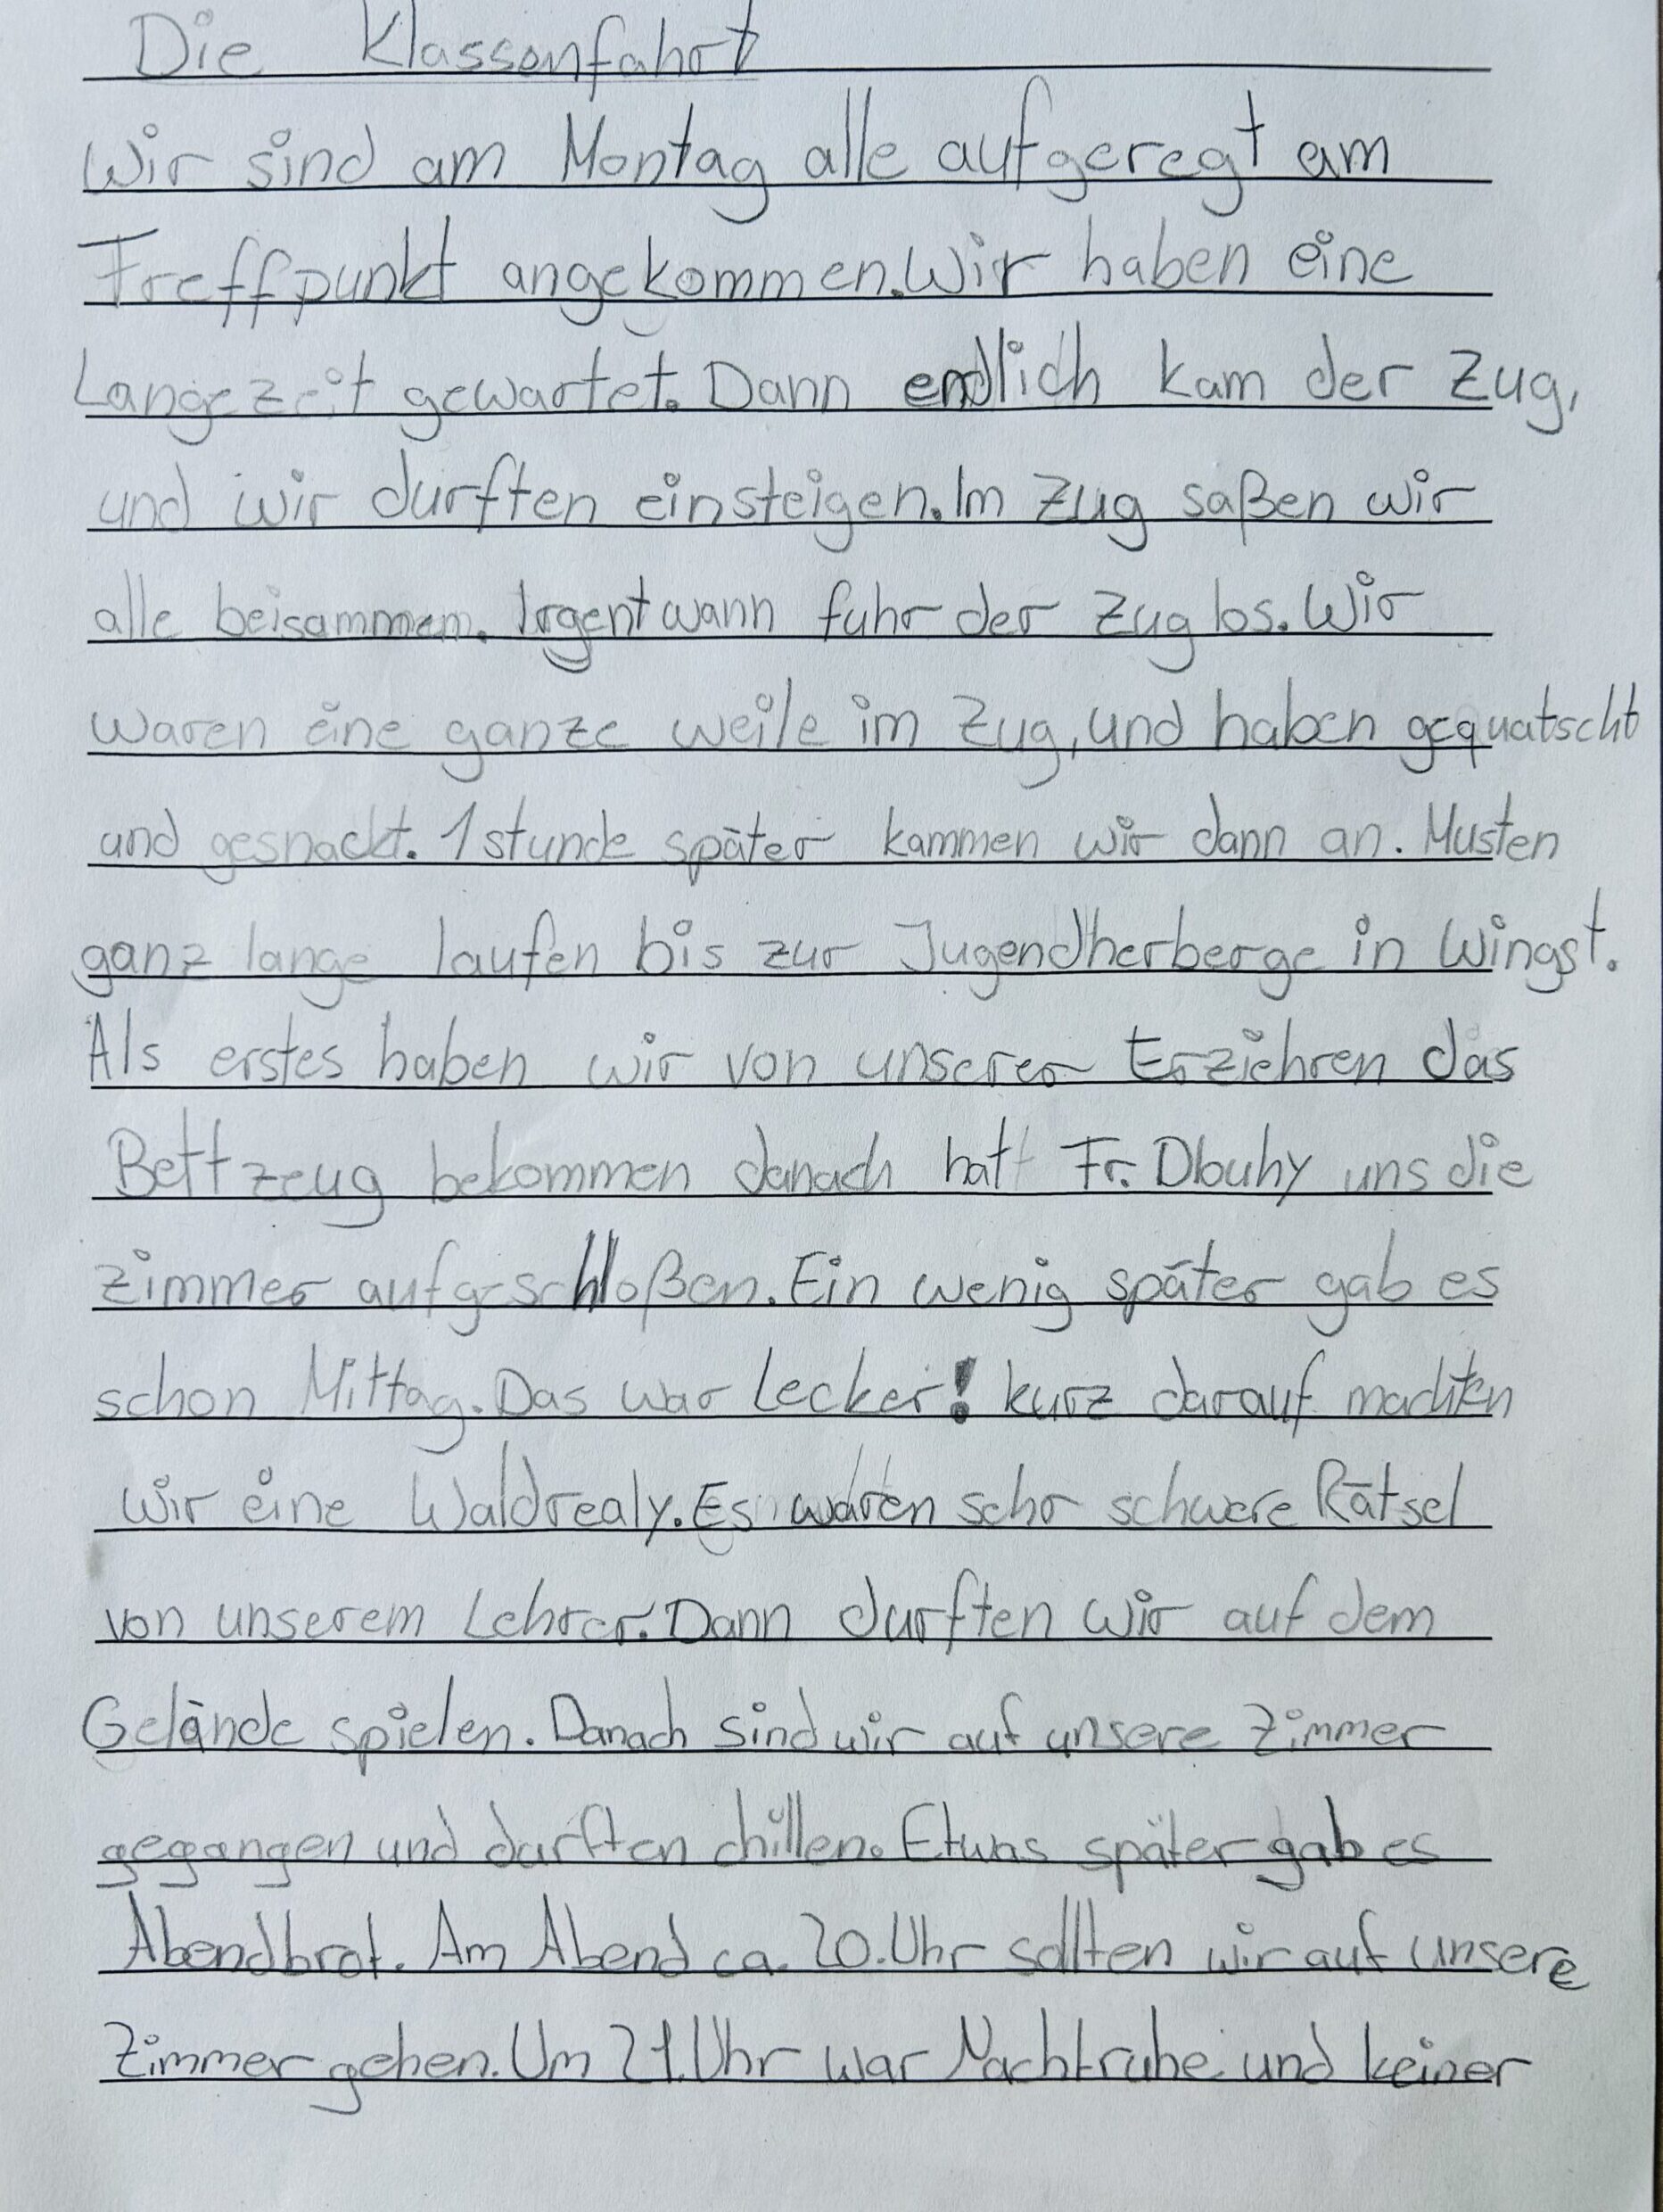 Die Klassenfahrt
Wir sind am Montag alle aufgeregt am
Treffpunkt angekommen. Wir haben eine
Lange zeit gewartet. Dann endlich kam der Zug,
und wir durften einsteigen. Im Zug saßen wir
alle beisammem. Irgentwann fuhr der Zug los. Wir
waren eine ganze weile im Zug, und haben gequatscht
und gesnackt. 1 stunde später kammen wir dann an. Musten
ganz lange laufen bis zur Jugendherberge in Wingst.
Als erstes haben wir von unserer Erziehren das
Bettzeug bekommen danach hatt Fr. Dlouhy uns die
Zimmer aufgeschloßen. Ein wenig später gab es
schon Mittag. Das war Lecker! kurz darauf machten
wir eine Waldrealy. Es waren sehr schwere Rätsel
von unserem Lehrer. Dann durften wir auf dem
Gelände spielen. Danach sind wir auf unsere Zimmer
gegangen und darften chillen. Etwas später gab es
Abendbrot. Am Abend ca. 20. Uhr sollten wir auf unsere
Zimmer gehen. Um 21. Uhr war Nachtruhe und keiner